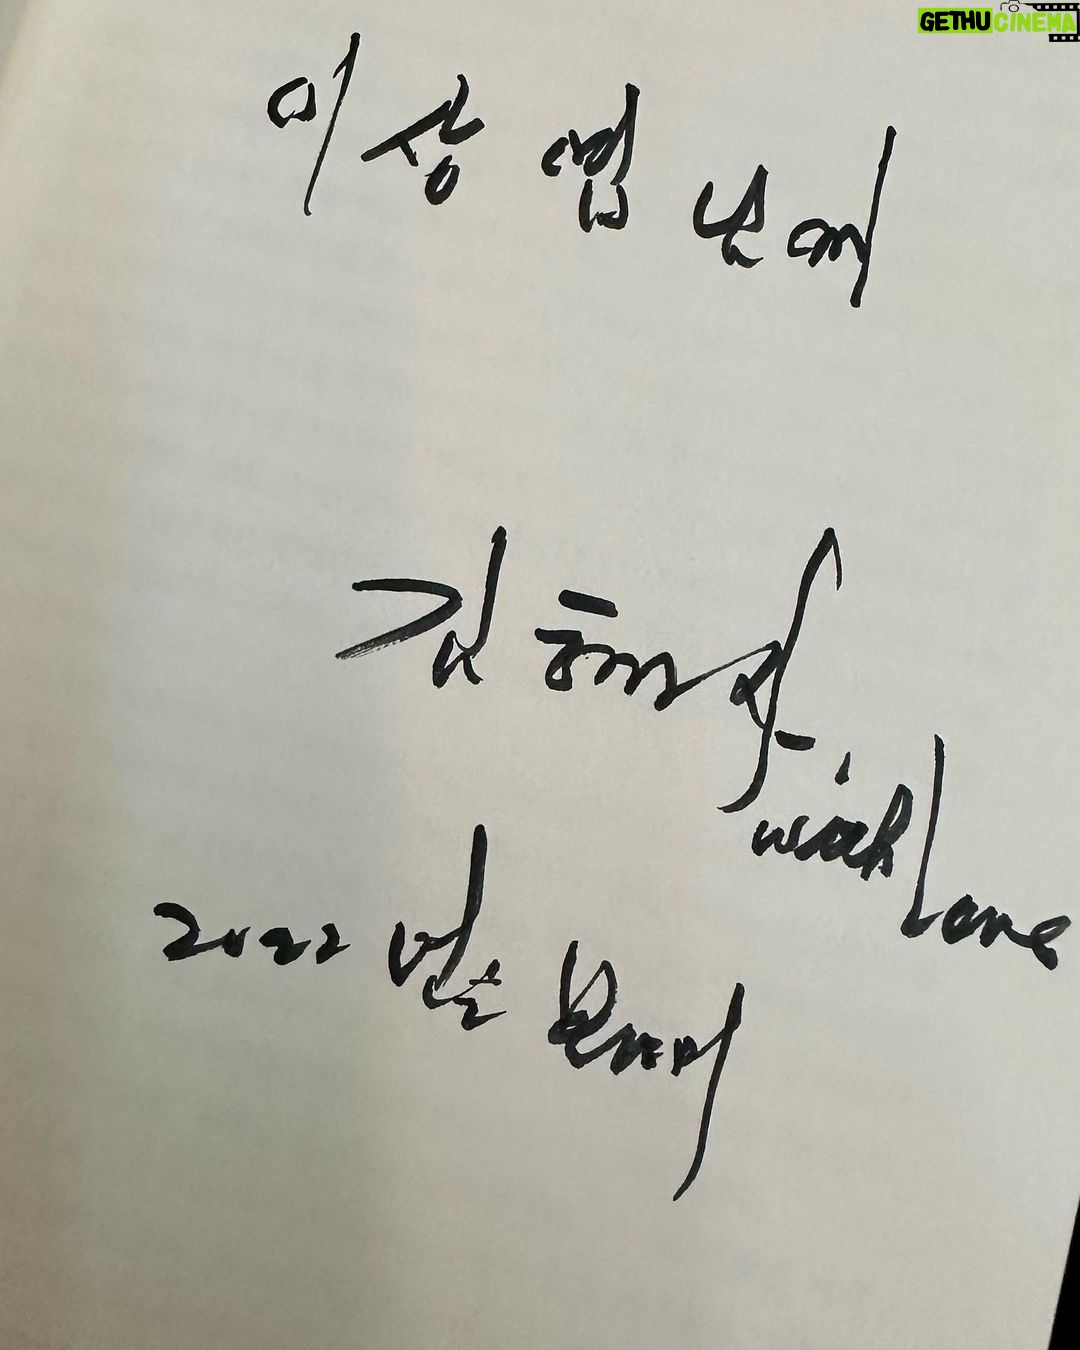 GETHUCINEMA
이상엽 님께
김혜자
with love
2022 년을 보내며